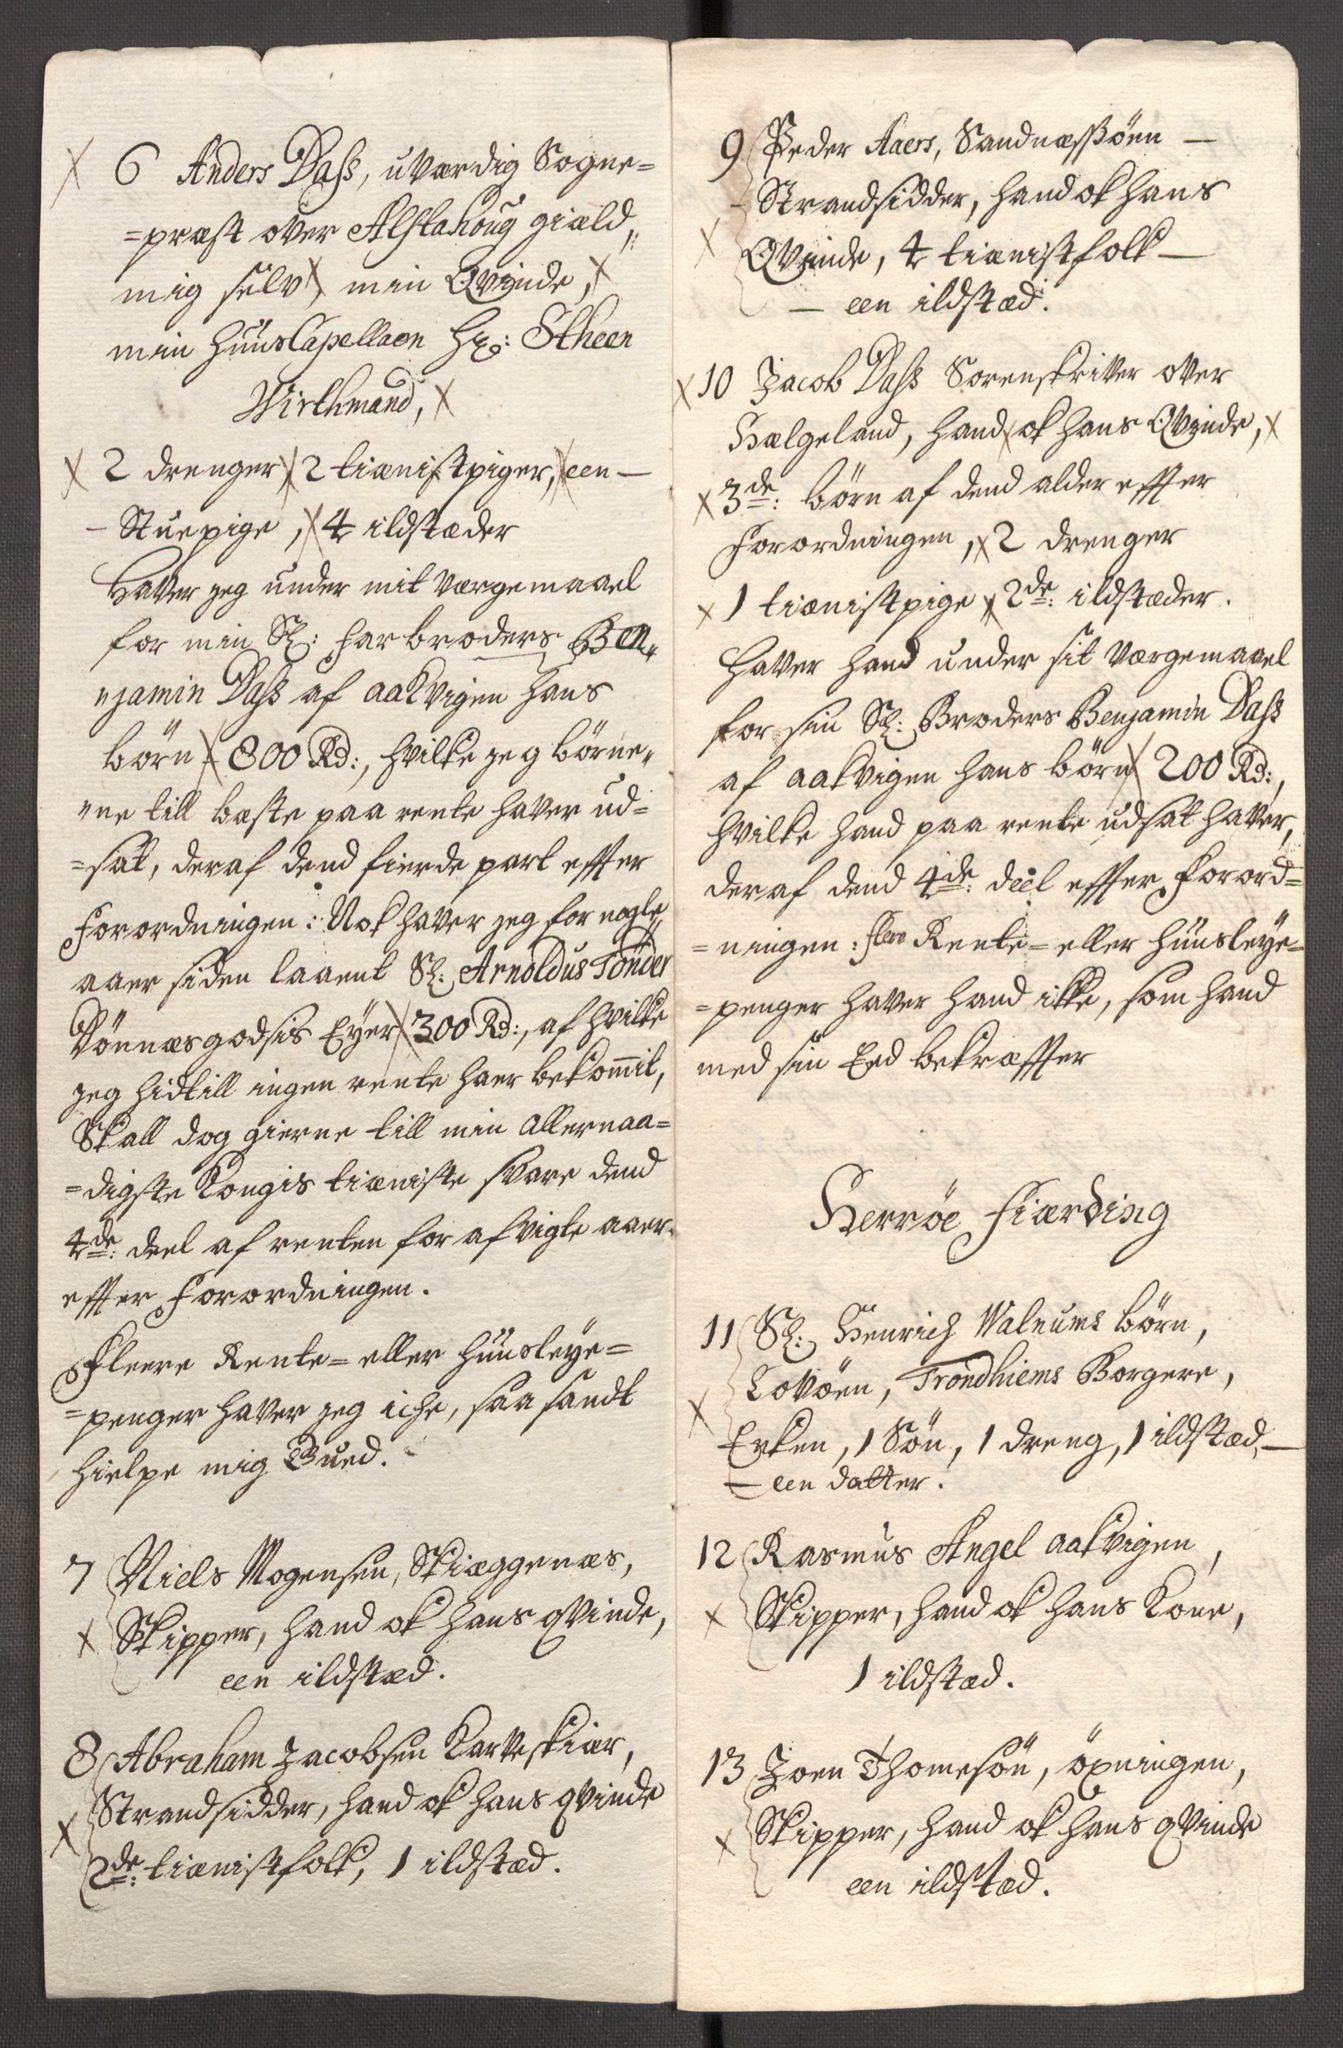 6 Anders Dass, uværdig Sogne=
=præst over Alstahoug gield,,
mig selv, min Qvinde,
min HuusCapellaen Hr: Stheen
Wirthmand,
2 drenger, 2 tienistpiger, een —
— Stuepige, 4 ildstæder
Haver jeg under mit værgemaael
for min Sl: farbroders Ben,,
,,jamin Dass af aakvigen hans
børn 800 Rd:, hvilke jeg børne,,
,,ne till bæste paa rente haver ud=
=sat, deraf dend fierde part effter
Forordningen: Nok haver jeg for nogle
aaer siden laaent Sl: Arnoldus Tönder
Dönnæsgodsis Eyer 300 Rd:, af hvilke
jeg hidtill ingen rente haer bekommit,
Skall dog gierne till min allernaa=
=digste Kongis tieniste svare dend
4de: deel af renten for afvigte aaer
effter Forordningen.
Fleere Rente= eller huusleye=
=penger haver jeg iche, saa sandt
hielpe mig Gued.
7 Niels Mogensen, Skieggenæs,
Skipper, hand ok hans qvinde,
een ildstæd.
8 Abraham Jacobsen Karveskiær,
Strandsidder, hand ok hans qvinde
2de: tienistfolk, 1 ildstæd.
9 Peder Aaers, Sandnæssöen —
— Strandsidder, hand ok hans
Qvinde, 4 tienistfolk —
— een ildstæd.
10 Jacob Dass Sorenskriver over
Helgeland, hand ok hans Qvinde,
3de: börn af dend alder effter
Forordningen, 2 drenger
1 tienistpige 2de: ildstæder.
Haver hand under sit værgemaael
for sin Sl: Broders Benjamin Dass
af aakvigen hans börn 200 Rd:,
hvilke hand paa rente udsat haver,
deraf dend 4de: deel effter Forord=
=ningen: flere Rente= eller huusleye=
=penger haver hand ikke, som hand
med sin Eed bekreffter
Herröe Fierding
11 Sl: Henrich Walnums börn,
Lovöen, Trondhiems Borgere,
Enken, 1 Sön, 1 dreng, 1 ildstæd, —
— een datter.
12 Rasmus Angel aakvigen,
Skipper, hand ok hans Kone,
1 ildstæd.
13 Joen Thomesön, öxningen,
Skipper, hand ok hans qvinde
een ildstæd.